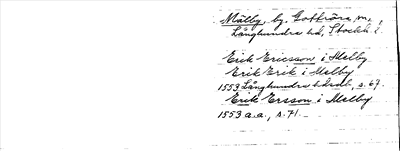 Mälby, by, Gottröra sn,
Långhundra hd, Stockh. l.
Erik Ericsson i Malby
Erik Erik i Malby
1553 Långhundra hds db, s. 69.
Erik Ersson i Malby
1553 a.a., s. 71.